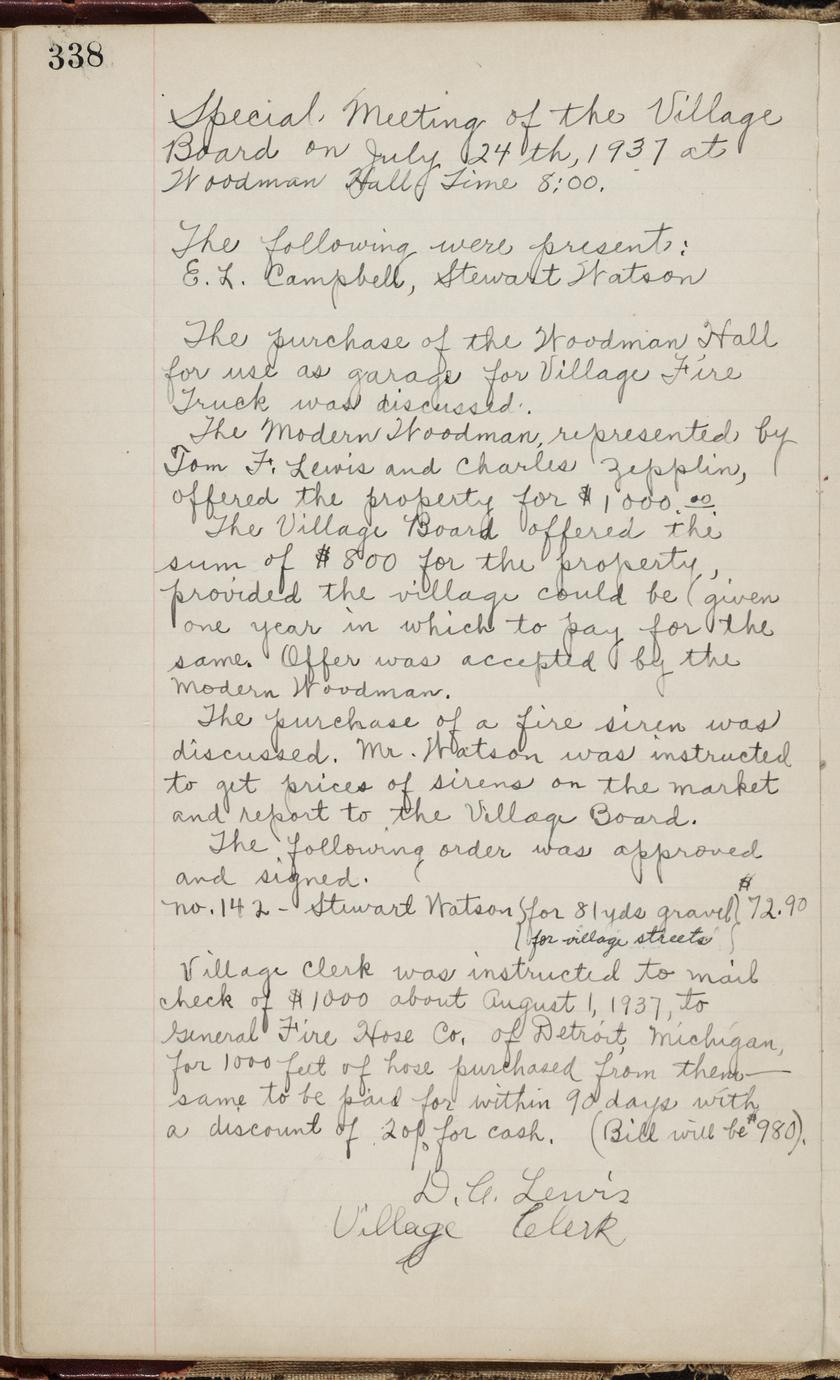 338
Special Meeting of the Village
Board on July 24th, 1937 at
Woodman Hall, Time 8:00.
The following were present:
E. L. Campbell, Stewart Watson
The purchase of the Woodman Hall
for use as garage for Village Fire
Truck was discussed.
The Modern Woodman, represented by
Tom F. Lewis and Charles Zepplin,
offered the property for $1000.00
The Village Board offered the
sum of $800 for the property,
provided the village could be given
one year in which to pay for the
same. Offer was accepted by the
Modern Woodman.
The purchase of a fire siren was
discussed. Mr. Watson was instructed
to get prices of sirens on the market
and report to the Village Board.
The following order was approved
and signed.
No. 142 - Stewart Watson {for 81 yds gravel} $72.90
{for village streets}
Village Clerk was instructed to mail
check of $1000 about August 1, 1937, to
General Fire Hose Co. of Detroit, Michigan,
for 1000 feet of hose purchased from them—
same to be paid for within 90 days with
a discount of 2% for cash. (Bill will be $980).
D. C. Lewis
Village Clerk